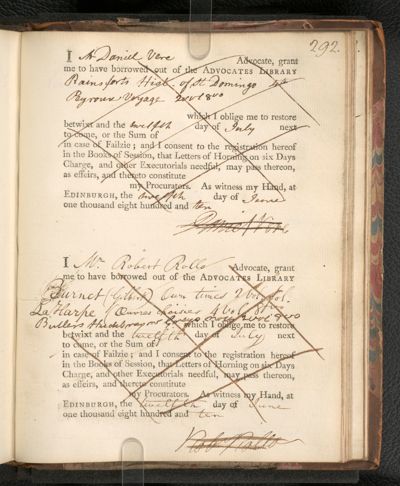 292.
I Mr Daniel Vere Advocate, grant
me to have borrowed out of the ADVOCATES LIBRARY
Rainsforts Hist. of St Domingo 4to
Byrons Voyage 8vo
which I oblige me to restore
betwixt and the twelfth day of July next
to come, or the Sum of
in case of Failzie; and I consent to the registration hereof
in the Books of Session, that Letters of Horning on six Days
Charge, and other Executorials needful, may pass thereon,
as effeirs, and thereto constitute
my Procurators. As witness my Hand, at
EDINBURGH, the twelfth day of June
one thousand eight hundred and ten
I Mr Robert Rollo Advocate, grant
me to have borrowed out of the ADVOCATES LIBRARY
Burnet (Gilbert) Own times 2 vol. fol.
La Harpe Œuvres choisies 4 vol. 8vo
which I oblige me to restore
betwixt and the twelfth day of July next
to come, or the Sum of
in case of Failzie; and I consent to the registration hereof
in the Books of Session, that Letters of Horning on six Days
Charge, and other Executorials needful, may pass thereon,
as effeirs, and thereto constitute
my Procurators. As witness my Hand, at
EDINBURGH, the twelfth day of June
one thousand eight hundred and ten
Robt Rollo